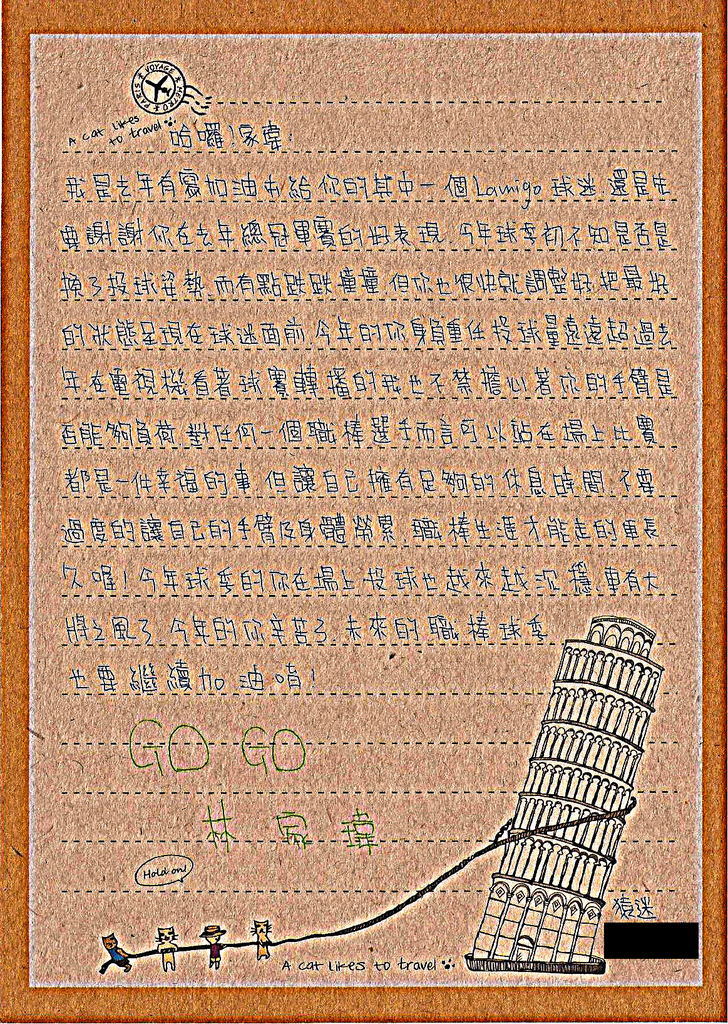 VOYAGE
PARIS METRO
A cat likes
to travel
哈囉!家瑋:
我是去年有寫加油卡給你的其中一個Lamigo球迷,還是先
要謝謝你在去年總冠軍賽的好表現,今年球季初不知是否是
換了投球姿勢,而有點跌跌撞撞,但你也很快就調整好,把最好
的狀態呈現在球迷面前,今年的你身負重任,投球量遠遠超過去
年,在電視機看著球賽轉播的我也不禁擔心著你的手臂是
否能夠負荷,對任何一個職棒選手而言可以站在場上比賽
都是一件幸福的事,但讓自己擁有足夠的休息時間,不要
過度的讓自己的手臂及身體勞累,職棒生涯才能走的更長
久喔!今年球季的你在場上投球也越來越沉穩,更有大
將之風了,今年的你辛苦了,未來的職棒球季
也要繼續加油唷!
GO GO
林家瑋
Hold on!
猿迷
A cat likes to travel